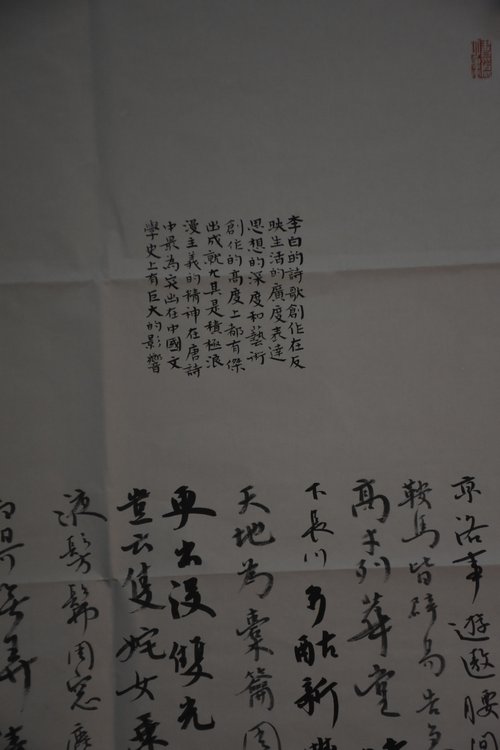 李白的詩歌創作在反
映生活的廣度表達
思想的深度和藝術
創作的高度上都有傑
出成就尤其是積極浪
漫主義的精神在唐詩
中最為突出在中國文
學史上有巨大的影響
京洛事遊遨腰间
鞍馬皆辟易告急
高才列華堂
下長川多酤新
天地為橐籥周
更出没雙光
豈云隻姹女乘
液髣髴周窓
白日可弄